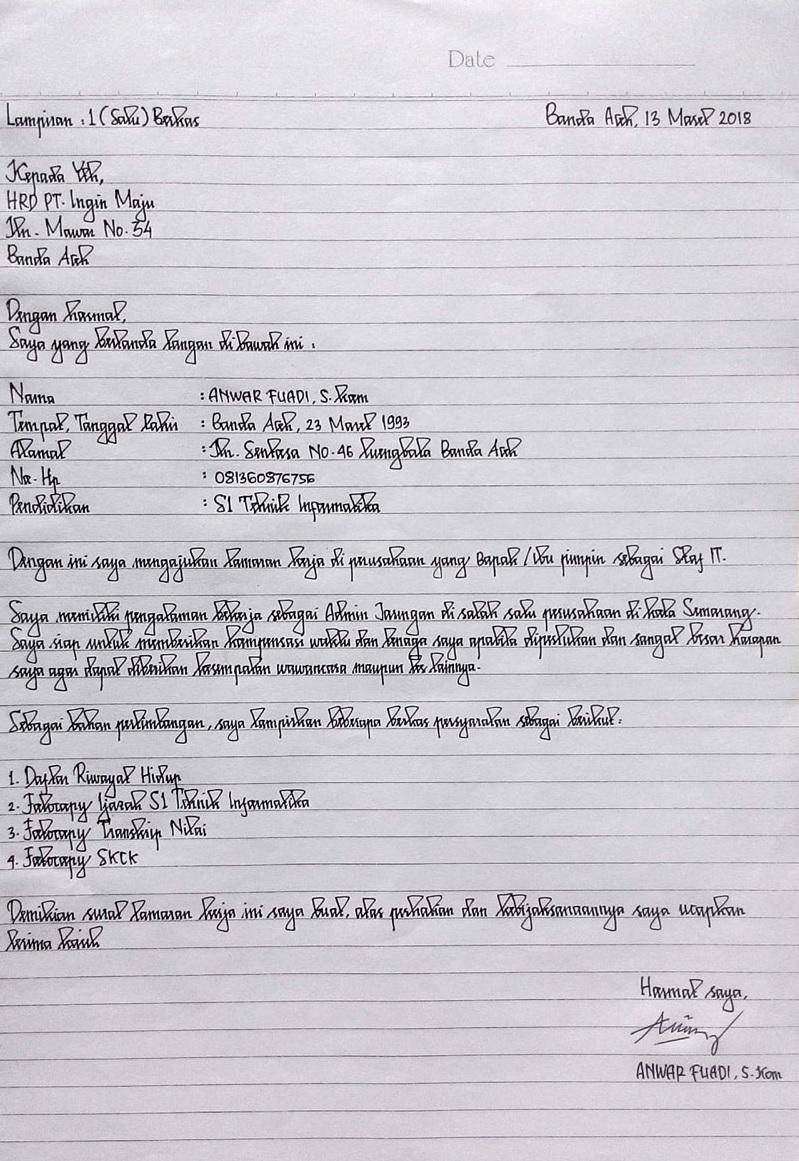 Date
Lampiran : 1 (Satu) Berkas
Banda Aceh, 13 Maret 2018
Kepada Yth,
HRD PT. Ingin Maju
Jln. Mawar No. 54
Banda Aceh
Dengan hormat,
Saya yang bertanda tangan di bawah ini :
Nama : ANWAR FUADI, S. Kom
Tempat, Tanggal Lahir : Banda Aceh, 23 Maret 1993
Alamat : Jln. Sentosa No. 46 Luengbata Banda Aceh
No. Hp : 081360876756
Pendidikan : S1 Teknik Informatika
Dengan ini saya mengajukan lamaran kerja di perusahaan yang Bapak / Ibu pimpin sebagai Staf IT.
Saya memiliki pengalaman bekerja sebagai Admin Jaringan di salah satu perusahaan di kota Semarang.
Saya siap untuk memberikan kompensasi waktu dan tenaga saya apabila diperlukan dan sangat besar harapan
saya agar dapat diberikan kesempatan wawancara maupun tes lainnya.
Sebagai bahan pertimbangan, saya lampirkan beberapa berkas persyaratan sebagai berikut :
1. Daftar Riwayat Hidup
2. Fotocopy Ijazah S1 Teknik Informatika
3. Fotocopy Transkip Nilai
4. Fotocopy SKCK
Demikian surat lamaran kerja ini saya buat, atas perhatian dan kebijaksanaannya saya ucapkan
terima kasih
Hormat saya,
ANWAR FUADI, S. Kom